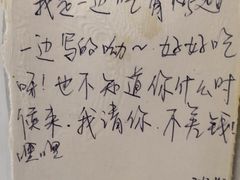 我是一边吃有
一边写的呦～好好吃
呀！也不知道你什么时
候来.我请你.不差钱!
嘿嘿